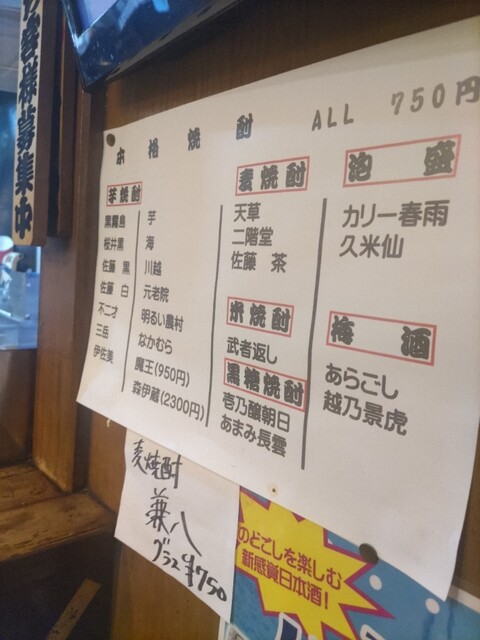 客様募集中
本格焼酎 ALL 750円
芋焼酎
黒霧島
桜井黒
佐藤 黒
佐藤 白
不二才
三岳
伊佐美
芋
海
川越
元老院
明るい農村
なかむら
魔王(950円)
森伊蔵(2300円)
麦焼酎
天草
二階堂
佐藤 茶
米焼酎
武者返し
黒糖焼酎
壱乃醸朝日
あまみ長雲
泡盛
カリー春雨
久米仙
梅酒
あらごし
越乃景虎
麦焼酎
兼八
グラス¥750
のどごしを楽しむ
新感覚日本酒!